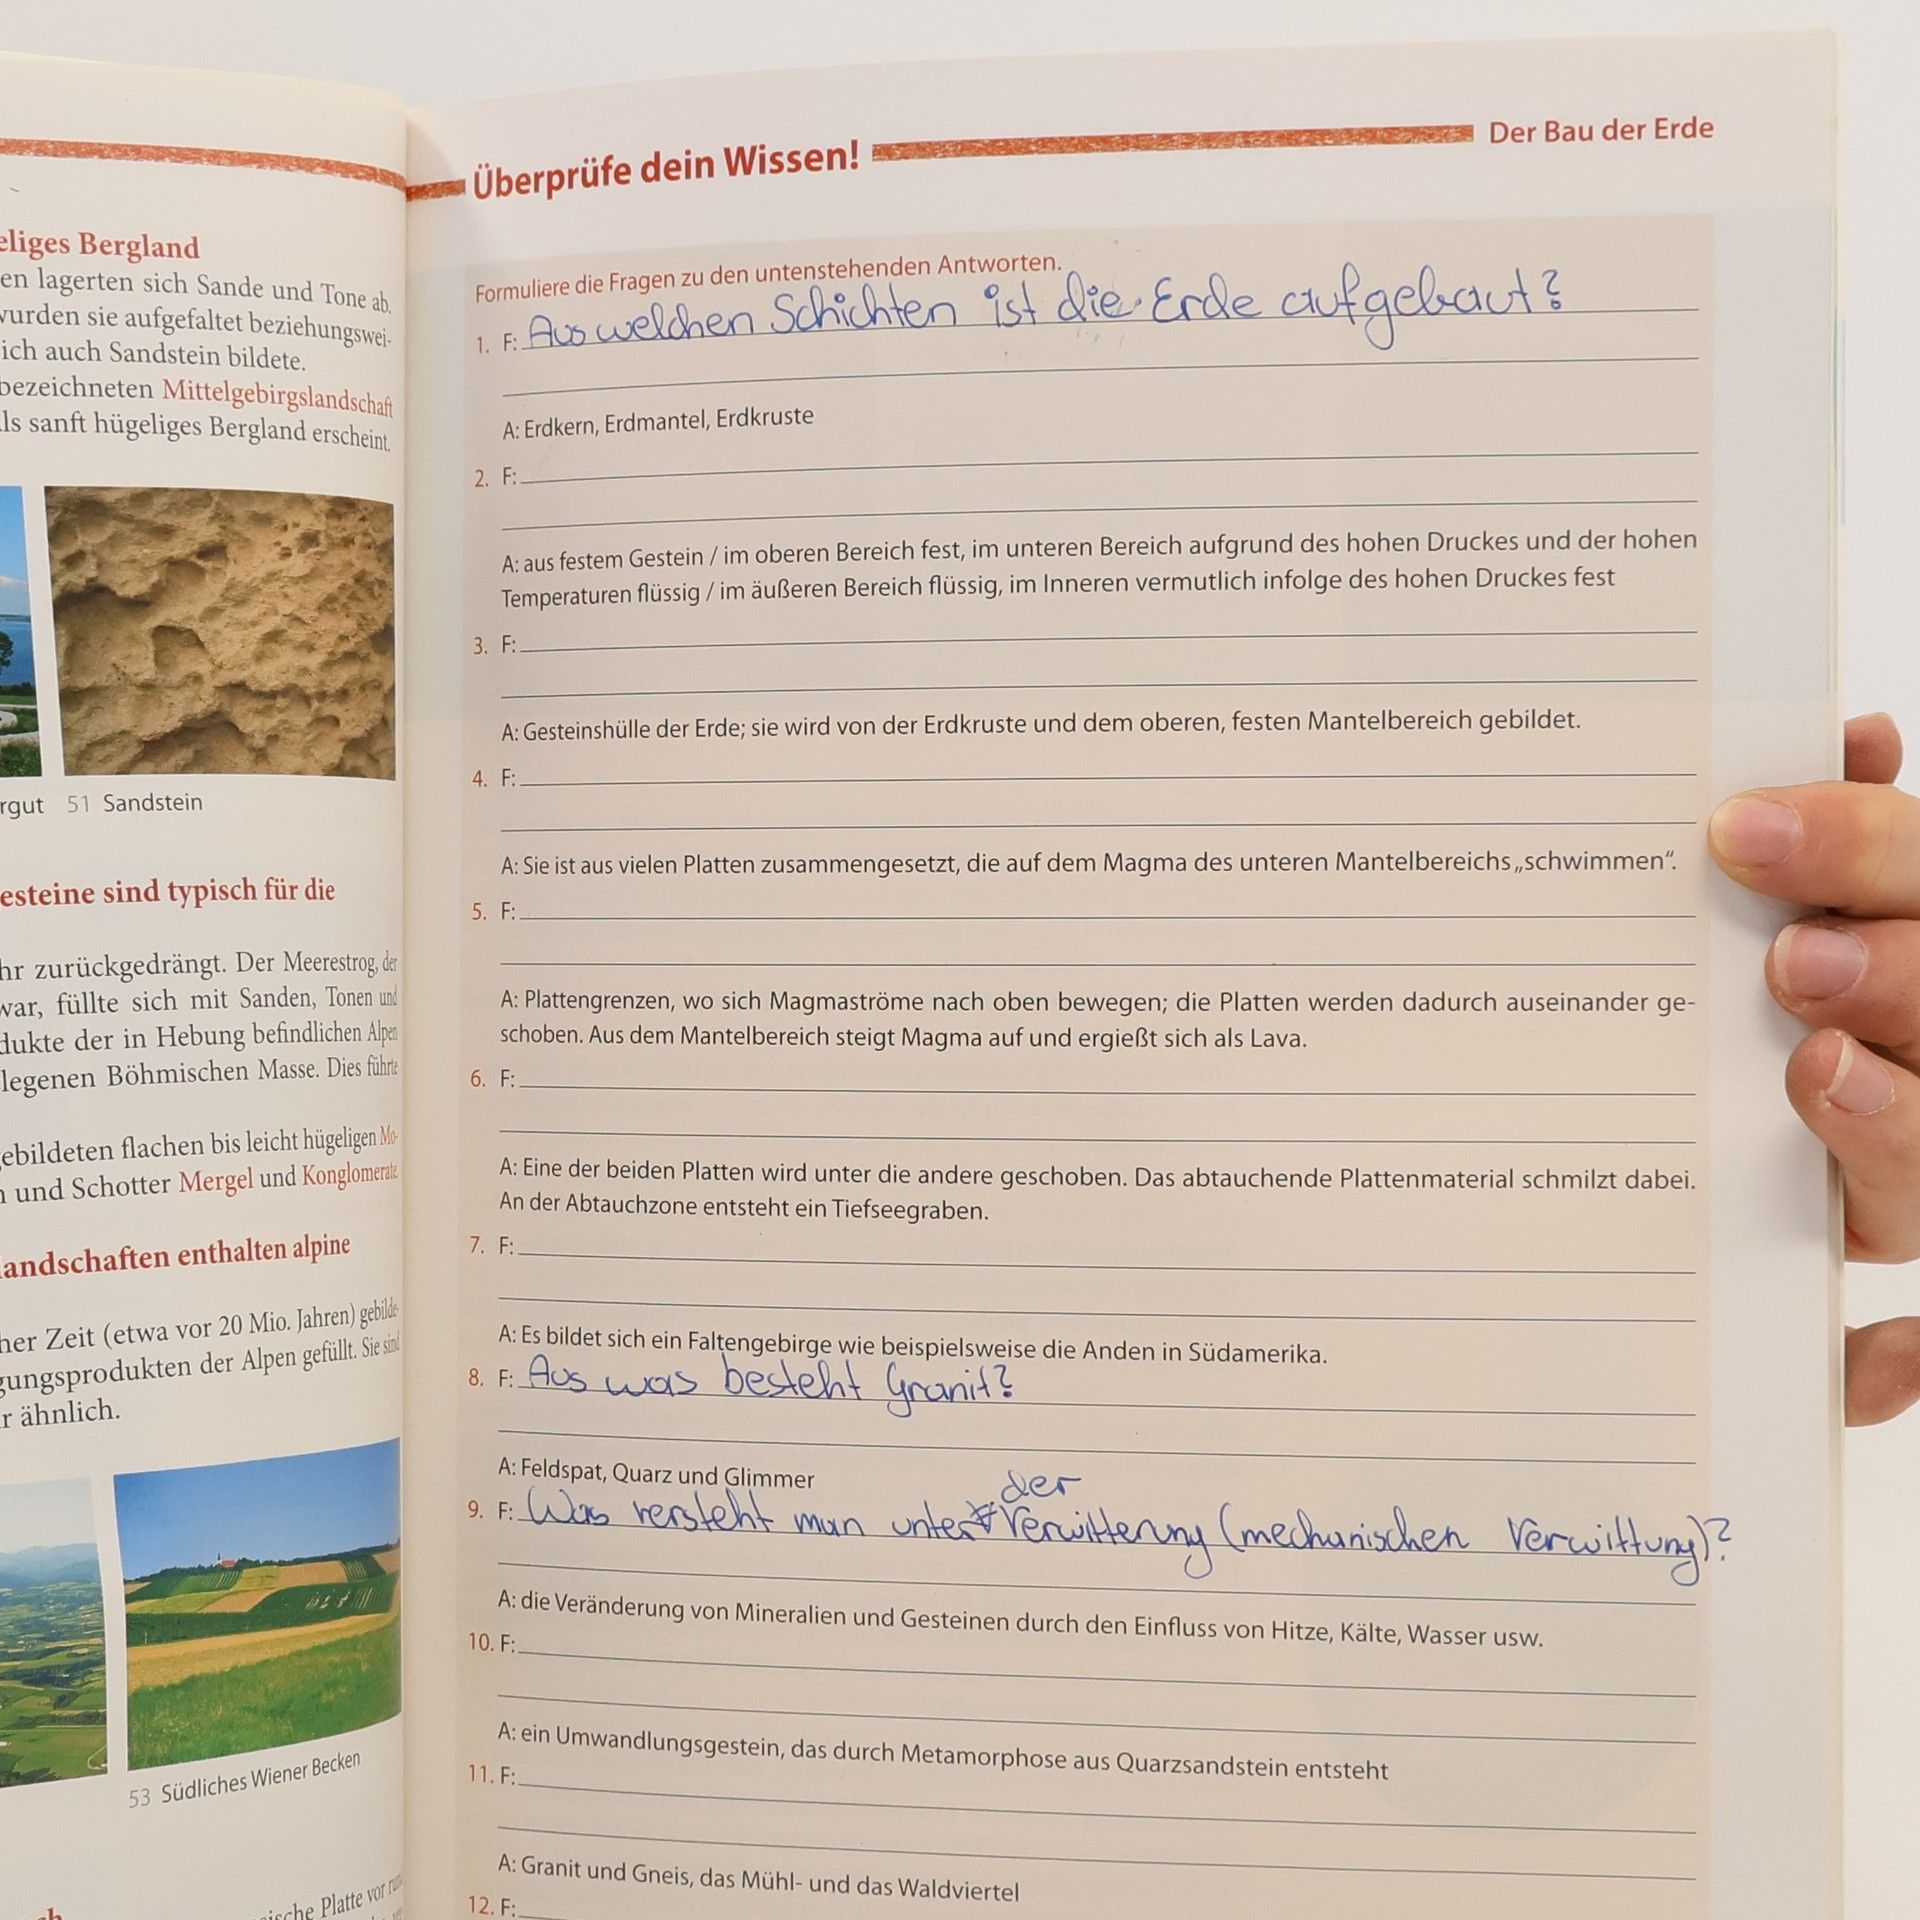 eliges Bergland
en lagerten sich Sande und Tone ab.
wurden sie aufgefaltet beziehungswei-
ich auch Sandstein bildete.
bezeichneten Mittelgebirgslandschaft
ls sanft hügeliges Bergland erscheint.
rgut 51 Sandstein
esteine sind typisch für die
hr zurückgedrängt. Der Meerestrog, der
war, füllte sich mit Sanden, Tonen und
dukte der in Hebung befindlichen Alpen
legenen Böhmischen Masse. Dies führte
ebildeten flachen bis leicht hügeligen Mo-
n und Schotter Mergel und Konglomerate.
landschaften enthalten alpine
her Zeit (etwa vor 20 Mio. Jahren) gebilde-
gungsprodukten der Alpen gefüllt. Sie sind
r ähnlich.
53 Südliches Wiener Becken
ische Platte vor
Überprüfe dein Wissen!
Der Bau der Erde
Formuliere die Fragen zu den untenstehenden Antworten.
1. F: Aus welchen Schichten ist die Erde aufgebaut?
A: Erdkern, Erdmantel, Erdkruste
2. F:
A: aus festem Gestein / im oberen Bereich fest, im unteren Bereich aufgrund des hohen Druckes und der hohen
Temperaturen flüssig / im äußeren Bereich flüssig, im Inneren vermutlich infolge des hohen Druckes fest
3. F:
A: Gesteinshülle der Erde; sie wird von der Erdkruste und dem oberen, festen Mantelbereich gebildet.
4. F:
A: Sie ist aus vielen Platten zusammengesetzt, die auf dem Magma des unteren Mantelbereichs „schwimmen“.
5. F:
A: Plattengrenzen, wo sich Magmaströme nach oben bewegen; die Platten werden dadurch auseinander ge-
schoben. Aus dem Mantelbereich steigt Magma auf und ergießt sich als Lava.
6. F:
A: Eine der beiden Platten wird unter die andere geschoben. Das abtauchende Plattenmaterial schmilzt dabei.
An der Abtauchzone entsteht ein Tiefseegraben.
7. F:
A: Es bildet sich ein Faltengebirge wie beispielsweise die Anden in Südamerika.
8. F: Aus was besteht Granit?
A: Feldspat, Quarz und Glimmer
der
9. F: Was versteht man unter Verwitterung (mechanischen Verwittung)?
A: die Veränderung von Mineralien und Gesteinen durch den Einfluss von Hitze, Kälte, Wasser usw.
10. F:
A: ein Umwandlungsgestein, das durch Metamorphose aus Quarzsandstein entsteht
11. F:
A: Granit und Gneis, das Mühl- und das Waldviertel
12. F: